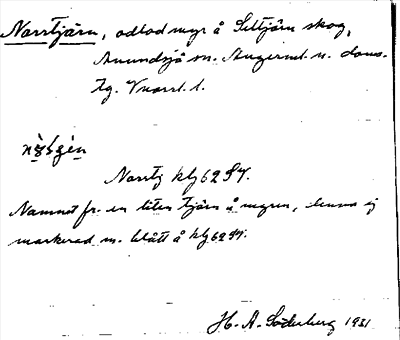 Norrtjärn, odlad myr å Seltjärn skog,
Anundsjö sn. Ångerml. n. doms.
Tg. Vnorrl. l.
Norrtj klg 62 S4.
Namnet fr. en liten tjärn å myren, denna ej
markerad m. blått å klg 62 S4.
H. A. Söderberg 1931